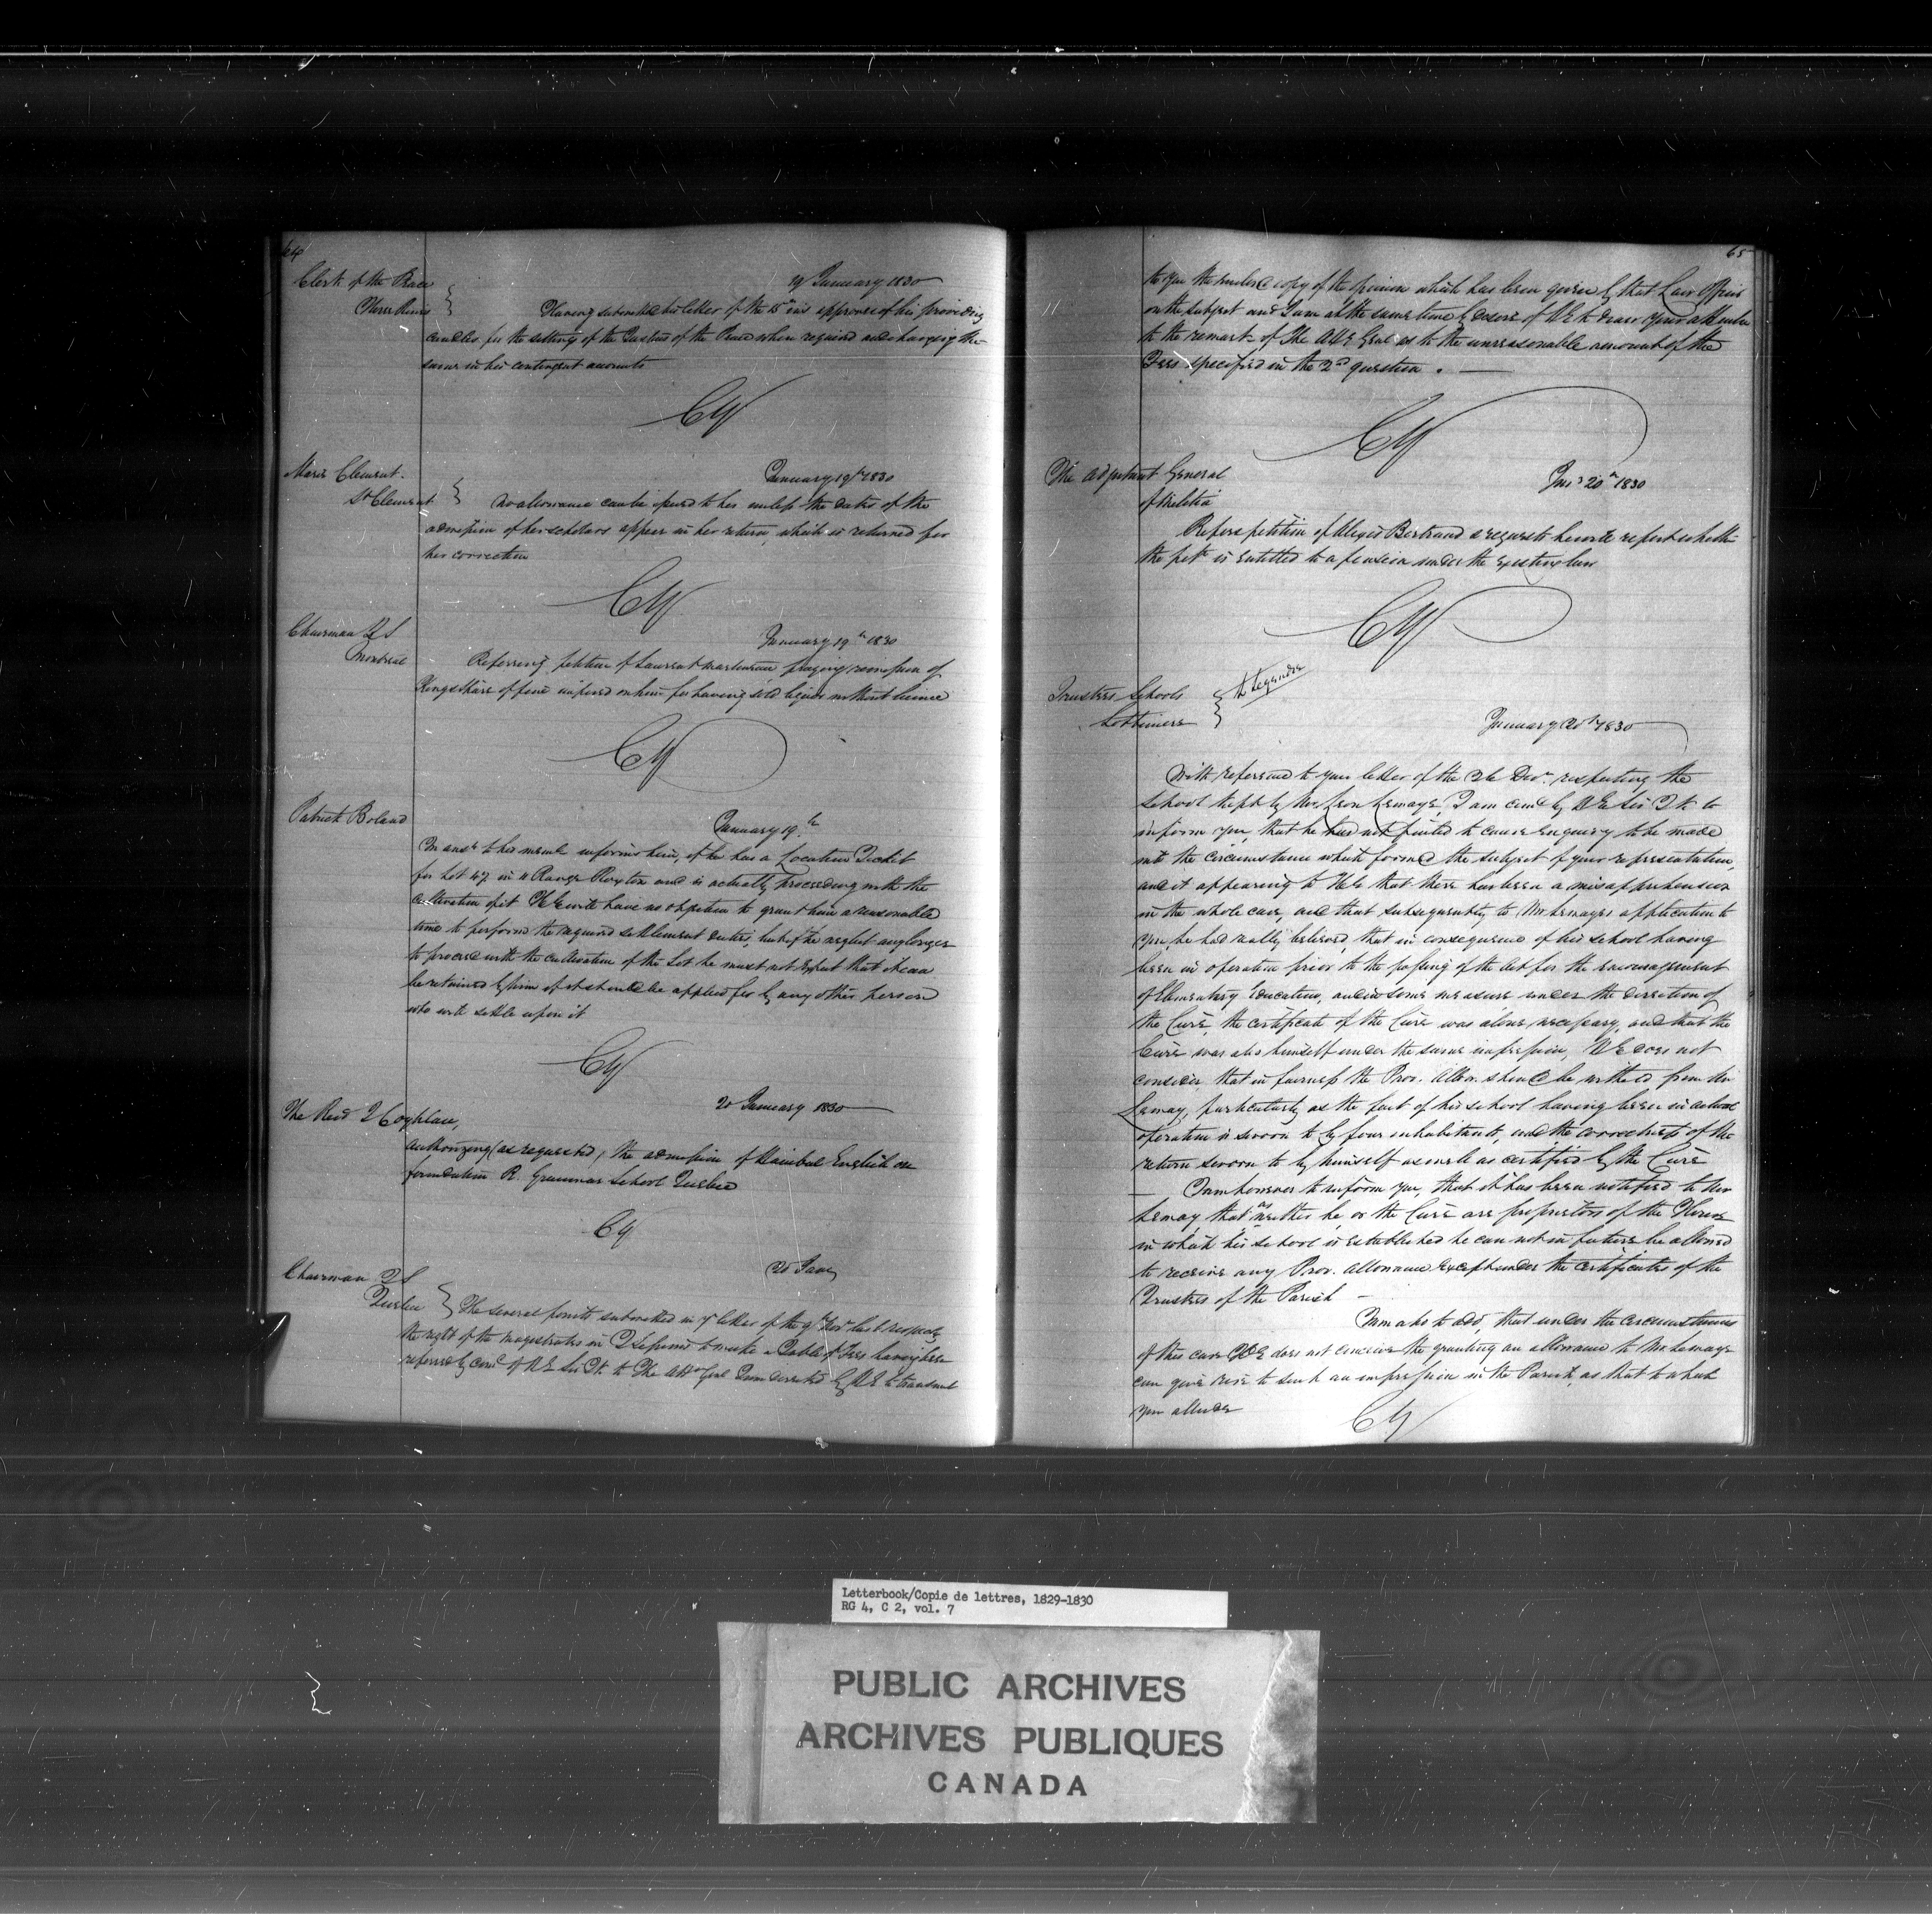 64
Clerk of the Peace
Three Rivers
19 January 1830
Having submitted his letter of the 15th ins approves of his providing
candles for the sitting of the Justices of the Peace when required and charging the
same in his contingent accounts
CY
Marie Clement
St Clement
January 19th 1830
No allowance can be issued to her unless the dates of the
admission of her scholars appear in her return, which is returned for
her correction
CY
Chairman Q S
Montreal
January 19th 1830
Referring petition of Laurent praying remission of
Kings share of fine imposed on him for having sold liquor without licence
CY
Patrick Boland
January 19th
In ansr to his meml informs him, if he has a Location Ticket
for Lot 47 in 4 Range Roxton and is actually proceeding with the
cultivation of it HE will have no objection to grant him a reasonable
time to perform the required settlement duties, but if he neglect any longer
to proceed with the cultivation of the Lot he must not expect that it can
be retained by him if it should be applied for by any other person
who will settle upon it
CY
20 January 1830
The Revd J Coghlan,
authorizing (as requested) the admission of Hanibal English on
foundation R. Grammar School Quebec
CY
Chairman Q S
Quebec
20 Jany
The several points submitted in yr letter of the 9th Novr last respectg
the right of the magistrates in Q Sessions to make a Table of Fees having been
referred by comd of HE Sir Jt. to The Atty Genl I am directed by HE to transmit
65
to you the enclosed copy of the opinion which has been given by that Law Officer
on the subject and I am at the same time by desire of HE to draw your attention
to the remark of The Atty Genl as to the unreasonable amount of the
Fees specified in the 2nd question. —
CY
The Adjutant General
of Militia
Jany 20th 1830
Refers petition of Alexis Bertrand & requests he will report whether
the petr is entitled to a pension under the existing law
CY
Trustees Schools
Lotbiniere
to Legendre
January 20th 1830
With reference to your letter of the 26 Decr. respecting the
School kept by Mr Leon Lemay, I am comd by HE Sir Jt to
inform you, that he has not failed to cause enquiry to be made
into the circumstance which formed the subject of your representation,
and it appearing to HE that there has been a misapprehension
in the whole case, and that subsequently to Mr Lemays application to
you, he had really believed, that in consequence of his school having
been in operation prior to the passing of the Act for the encouragement
of Elementary Education, and in some measure under the direction of
the Curé, the certificate of the Curé was alone necessary, and that the
Curé was also himself under the same impression, HE does not
consider, that in fairness the Prov. Allce. should be withheld from Mr
Lemay, particularly as the fact of his school having been in actual
operation is sworn to by four inhabitants, and the correctness of the
return sworn to by himself as well as certified by the Curé
— I am however to inform you, that it has been notified to Mr
Lemay that as neither he, or the Curé are proprietors of the House
in which his school is established he can not in future be allowed
to receive any Prov. allowance except under the certificates of the
Trustees of the Parish —
I am also to add, that under the circumstances
of this case HE does not conceive the granting an allowance to Mr Lemay
can give rise to such an impression in the Parish, as that to which
you allude
CY
Letterbook/Copie de lettres, 1829-1830
RG 4, C 2, vol. 7
PUBLIC ARCHIVES
ARCHIVES PUBLIQUES
CANADA